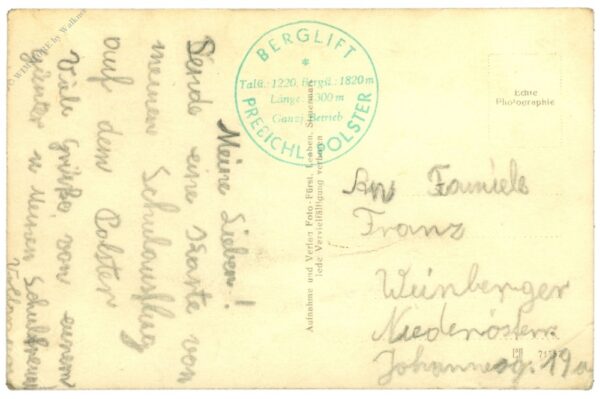 Meine Lieben!
Sende eine Karte von
meinen Schulausflug
auf dem Polster
Viele Grüße von eurem
Günter u meinen Schulfreund
BERGLIFT
Talst.: 1220, Bergst.: 1820m
Länge 1300 m
Ganzj. Betrieb
PREBICHL-POLSTER
Aufnahme und Verlag Foto-Fürst, Leoben, Steiermark
Jede Vervielfältigung verboten
Echte
Photographie
An Famiele
Franz
Weinberger
Niederösterr.
Johannesg. 19a
by Walkner